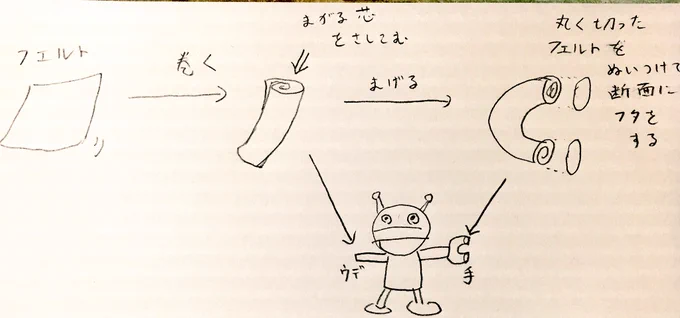 フェルト
巻く
まがる芯
をさしこむ
まげる
丸く切った
フェルトを
ぬいつけて
断面に
フタを
する
ウデ
手